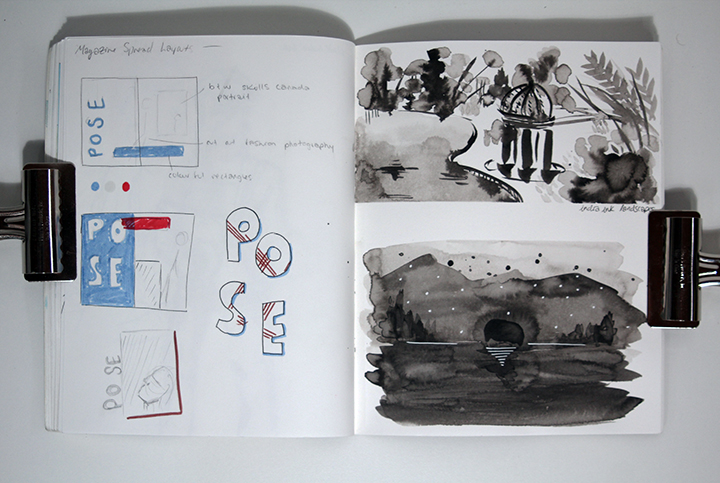 Magazine Spread Layout —
POSE
portrait
cut out fashion photography
colourful rectangles
PO
SE
POSE
PO
SE
india ink landscape